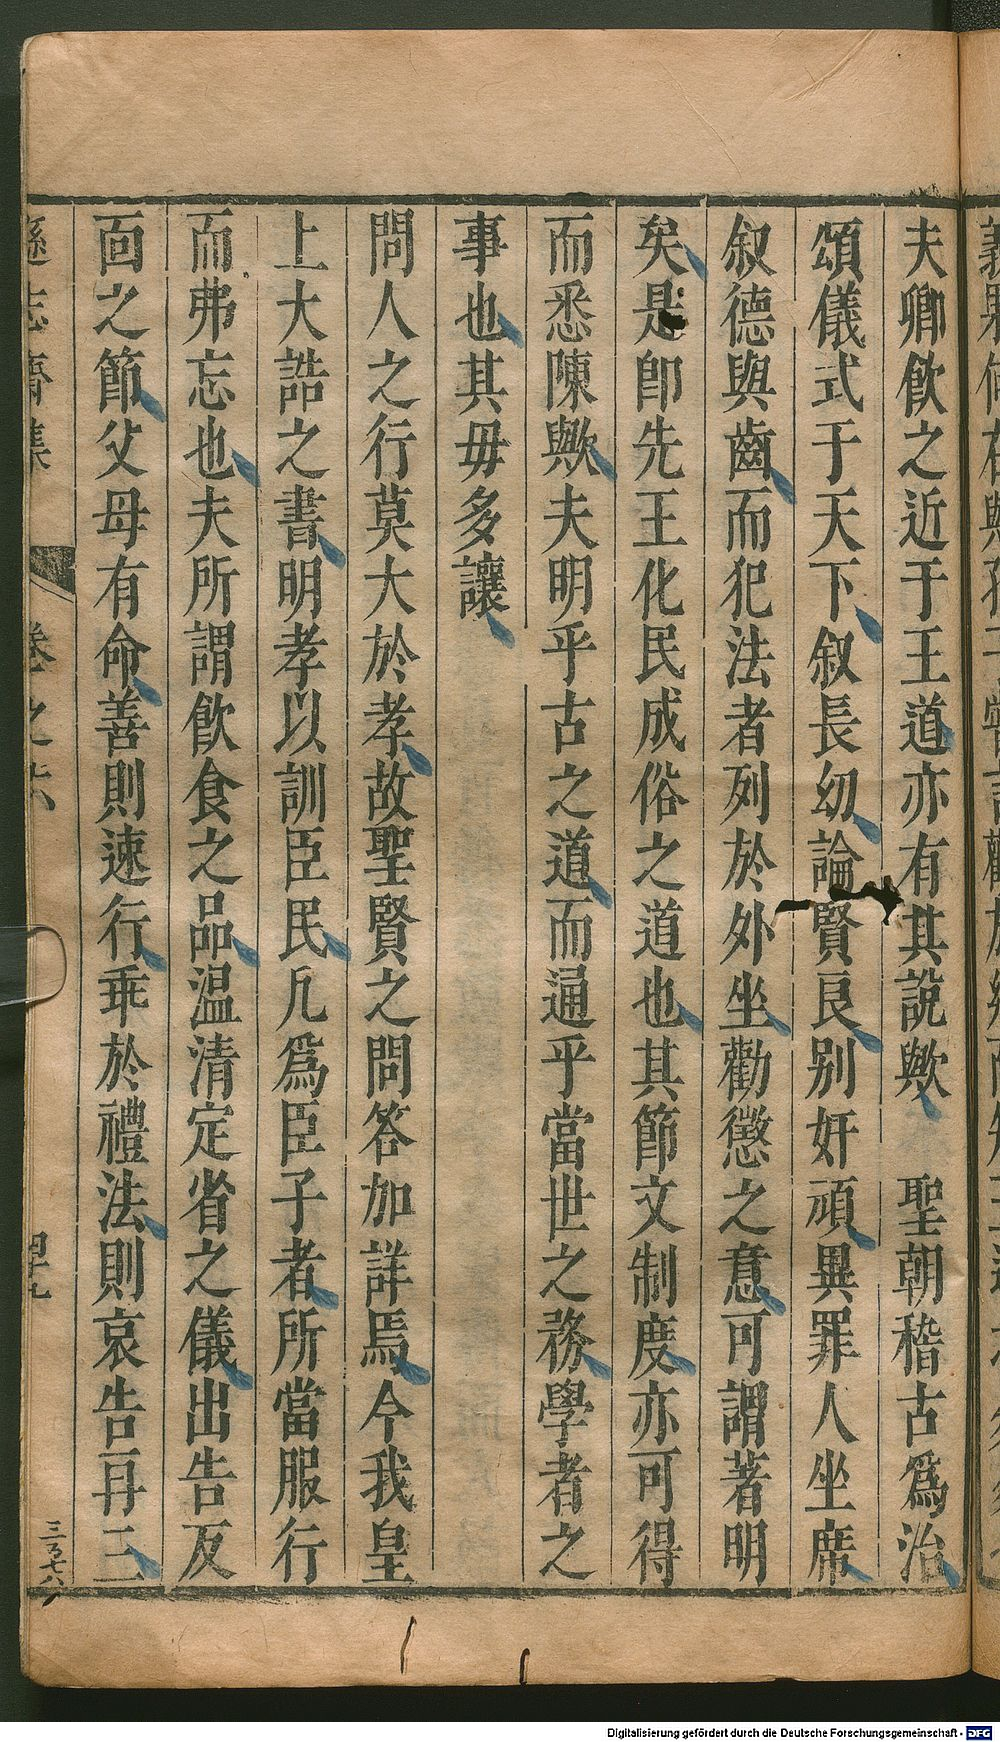 夫鄉飲之近于王道亦有其說歟　聖朝稽古爲治
頒儀式于天下叙長幼論賢良別奸頑異罪人坐席
叙德與齒而犯法者列於外坐勸懲之意可謂著明
矣是卽先王化民成俗之道也其節文制度亦可得
而悉陳歟夫明乎古之道而通乎當世之務學者之
事也其毋多讓
問人之行莫大於孝故聖賢之問答加詳焉今我皇
上大誥之書明孝以訓臣民凡爲臣子者所當服行
而弗忘也夫所謂飲食之品溫清定省之儀出告反
面之節父母有命善則速行乖於禮法則哀告再三
遜志齋集　卷之六　四十九
Digitalisierung gefördert durch die Deutsche Forschungsgemeinschaft - DFG